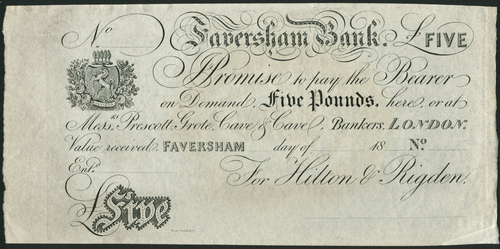 No Faversham Bank. £ FIVE
I Promise to pay the Bearer
on Demand, Five Pounds, here, or at
Mess.rs Prescott, Grote, Cave & Cave, Bankers, LONDON.
Value received, FAVERSHAM day of 18 No
Ent.
For Hilton & Rigden.
£ Five